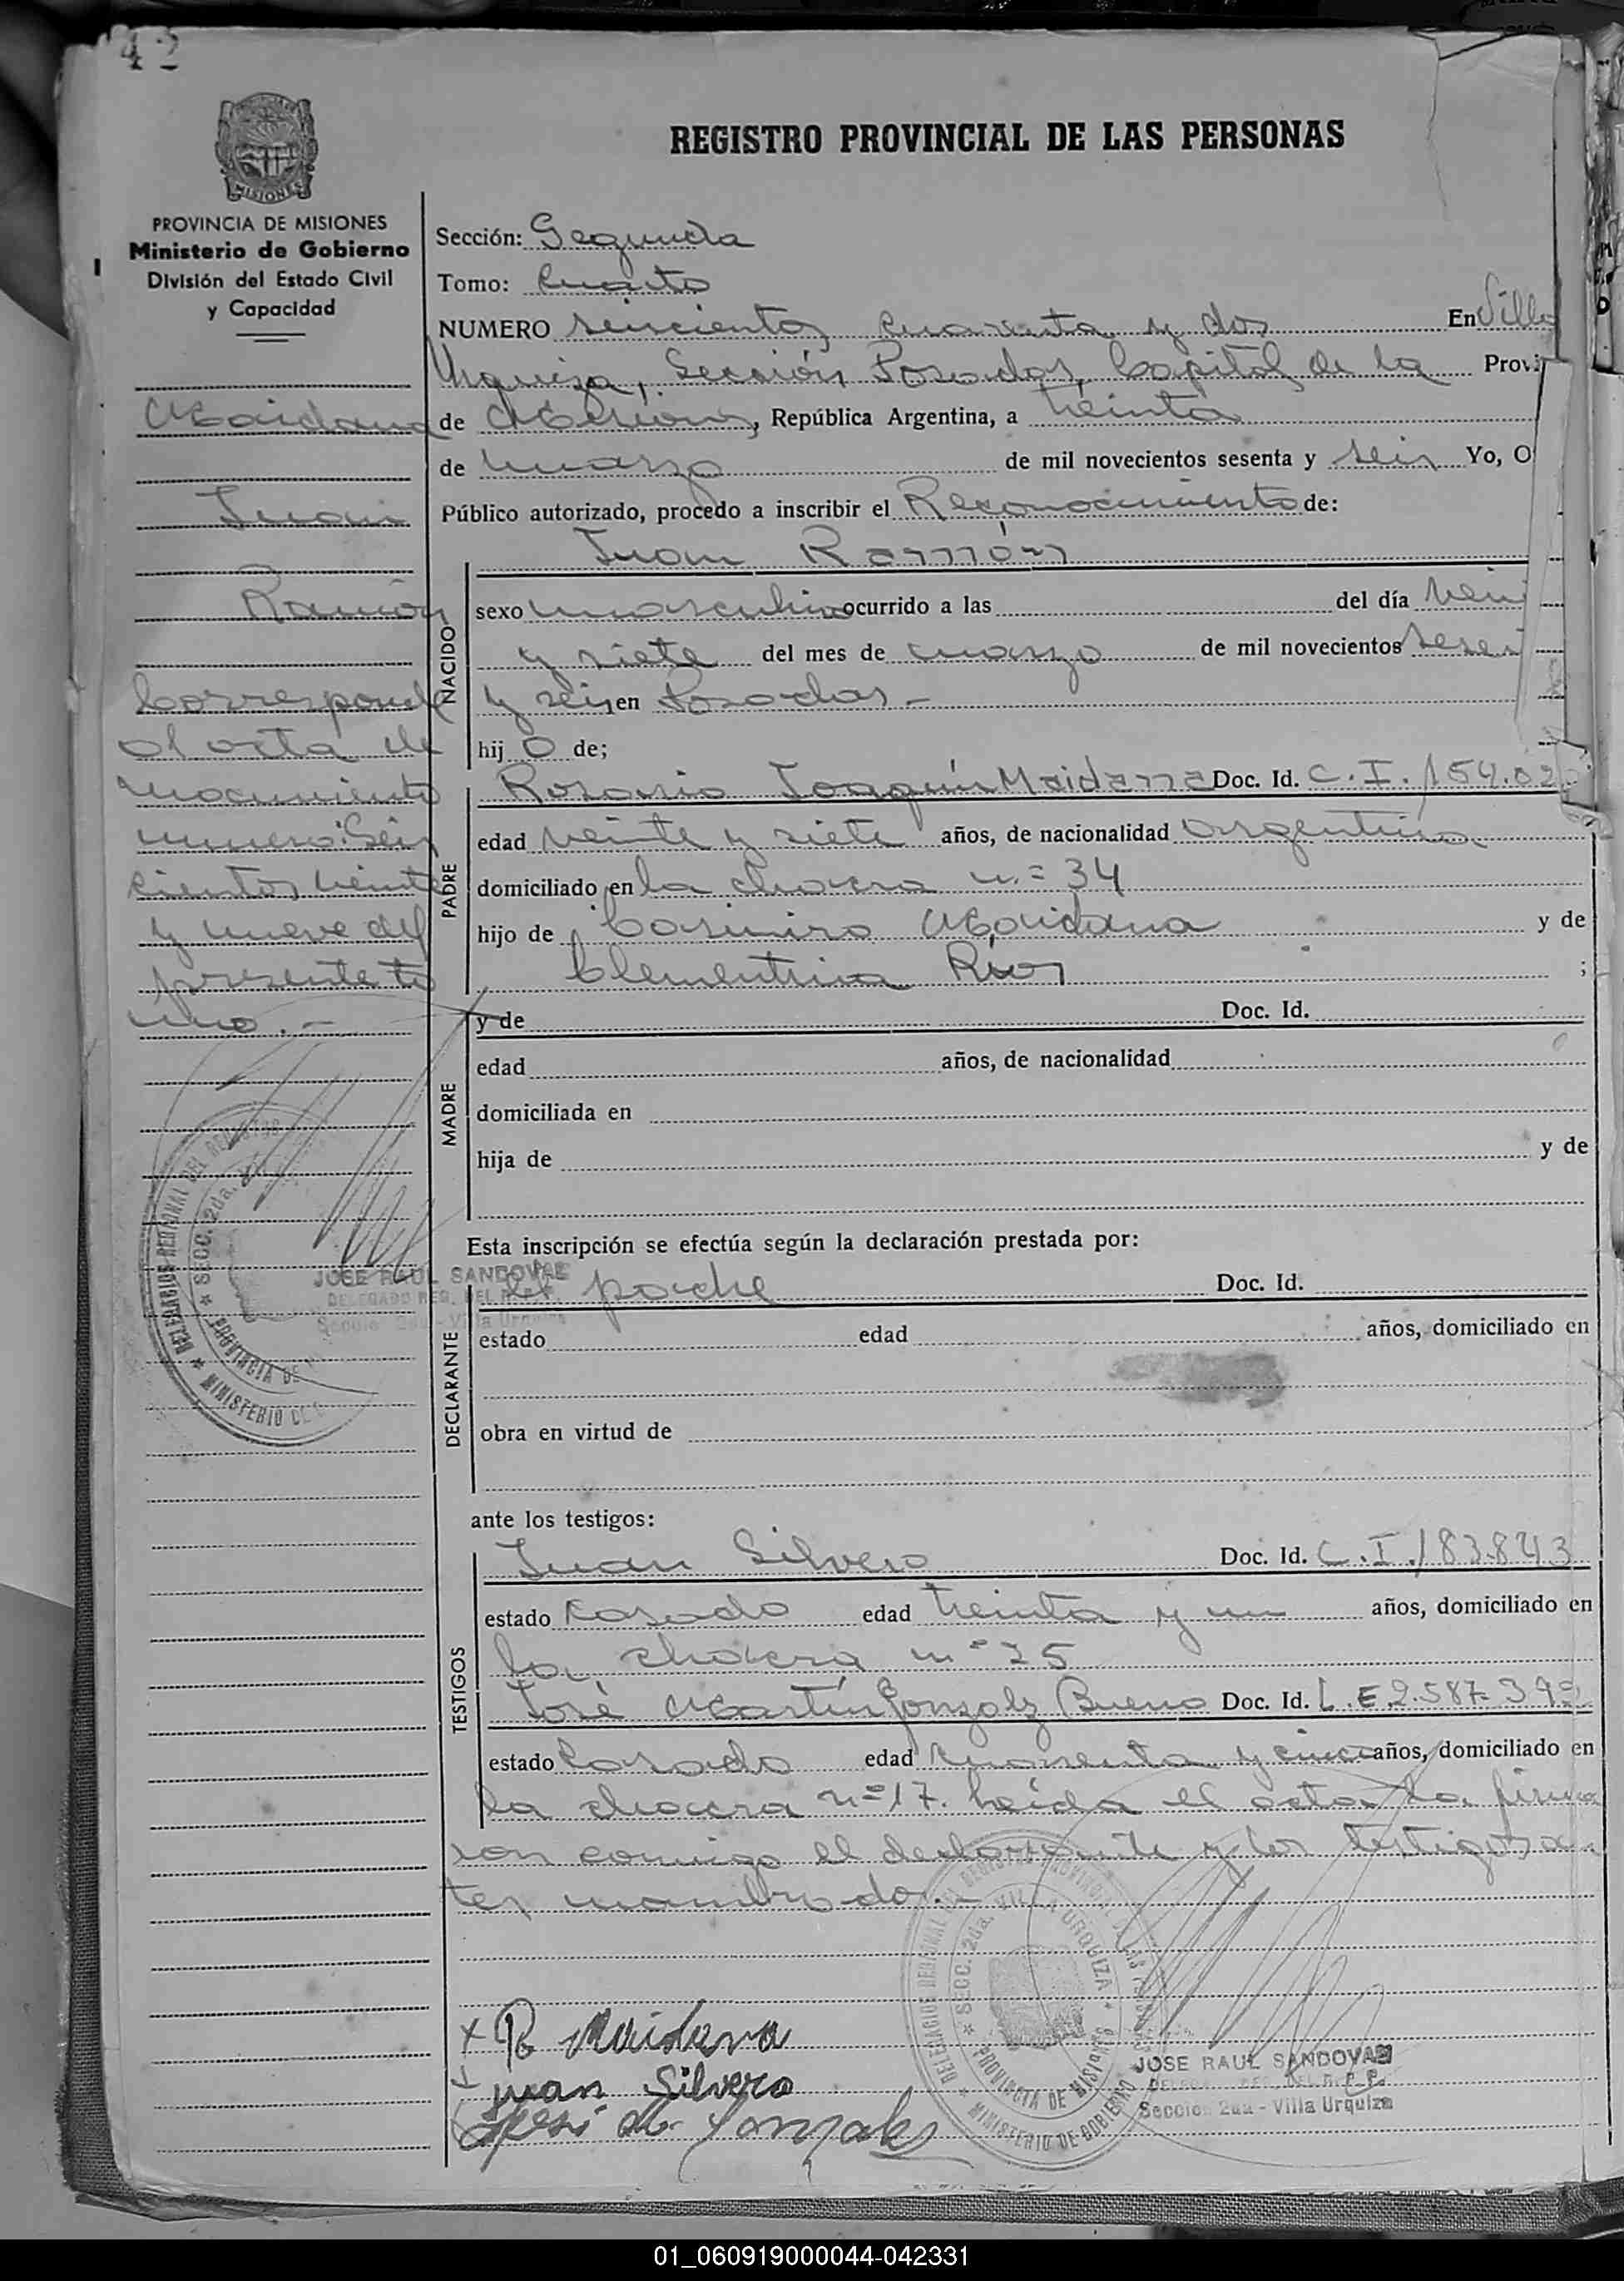 42
REGISTRO PROVINCIAL DE LAS PERSONAS
MISIONES
PROVINCIA DE MISIONES
Ministerio de Gobierno
División del Estado Civil
y Capacidad
Maidana
Juan
Ramón
Corresponde
al acta de
nacimiento
numero: Seis
cientos veinte
y nueve del
presente to
mo.-
Sección: Segunda
Tomo: Cuarto
NUMERO seiscientos cuarenta y dos En Villa
Urquiza, Sección Posadas, Capital de la Provi
de Misiones, República Argentina, a treinta
de marzo de mil novecientos sesenta y seis Yo, O
Público autorizado, procedo a inscribir el Reconocimiento de:
Juan Ramón
NACIDO
sexo masculino ocurrido a las del día vein
y siete del mes de marzo de mil novecientos sesen
y seis en Posadas -
hijo de;
PADRE
Rosario Joaquín Maidana Doc. Id. C.I. 154.02
edad veinte y siete años, de nacionalidad argentino.
domiciliado en la chacra n.= 34
hijo de Casimiro Maidana y de
Clementina Rios ;
MADRE
y de Doc. Id.
edad años, de nacionalidad
domiciliada en
hija de y de
Esta inscripción se efectúa según la declaración prestada por:
DECLARANTE
el padre Doc. Id.
estado edad años, domiciliado en
obra en virtud de
ante los testigos:
TESTIGOS
Juan Silvero Doc. Id. C.I. 183.843
estado casado edad treinta y un años, domiciliado en
la chacra n= 25
José Martín Gonzalz Bueno Doc. Id. L.E 2.587.39
estado Casado edad cuarenta y cinco años, domiciliado en
la chacra n=17. Leída el acta la firma
ron conmigo el declarante y los testigos an
tes nombrado.-
x R Maidana
Juan Silvero
José M. Gonzalez
JOSE RAUL SANDOVAL
DELEGADO REG. DEL R.P.P.
Sección 2da - Villa Urquiza
DELEGACION REGIONAL DEL REGISTRO
* SECC. 2da. VI
PROVINCIA DE
* MINISTERIO DE G
DELEGACION REGIONAL DEL REGISTRO PROVINCIAL DE LAS PERSONAS
* SECC. 2da. VILLA URQUIZA *
PROVINCIA DE MISIONES
* MINISTERIO DE GOBIERNO
JOSE RAUL SANDOVAL
DELEGADO REG. DEL R.P.P.
Sección 2da - Villa Urquiza
01_060919000044-042331